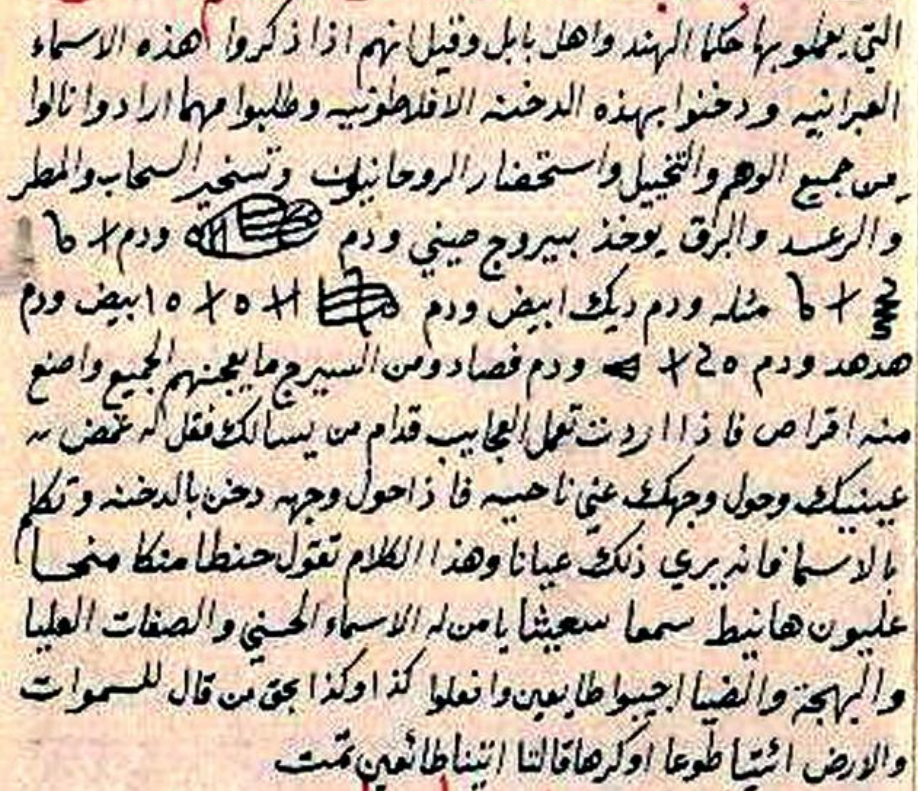 التي يعملو بها حكما الهند واهل بابل وقيل انهم اذا ذكروا هذه الاسماء
العبرانيه ودخنوا بهذه الدخنه الافلاطونيه وطلبوا مهما ارادوا نالوا
من جميع الوهم والتخييل واستحضار الروحانيات وتسخير السحاب والمطر
والرعد والبرق يوخذ بيروج صيني ودم ودم
مثله ودم ديك ابيض ودم ابيض ودم
هدهد ودم ودم فصاد ومن السيرج ما يعجنهم الجميع واصنع
منه اقراص فاذا اردت تعمل العجايب قدام من يسالك فقل له غمض
عينيك وحول وجهك عني ناحيه فاذا حول وجهه دخن بالدخنه وتكلم
بالاسما فانه يري ذلك عيانا وهذا الكلام تقول حنطا منكا
عليون هانيط سمعا سعيثا يا من له الاسماء الحسني والصفات العليا
والبهجة والضيا اجيبوا طايعين وافعلوا كذا وكذا بحق من قال للسموات
والارض ائتيا طوعا او كرها قالتا اتينا طائعين تمت